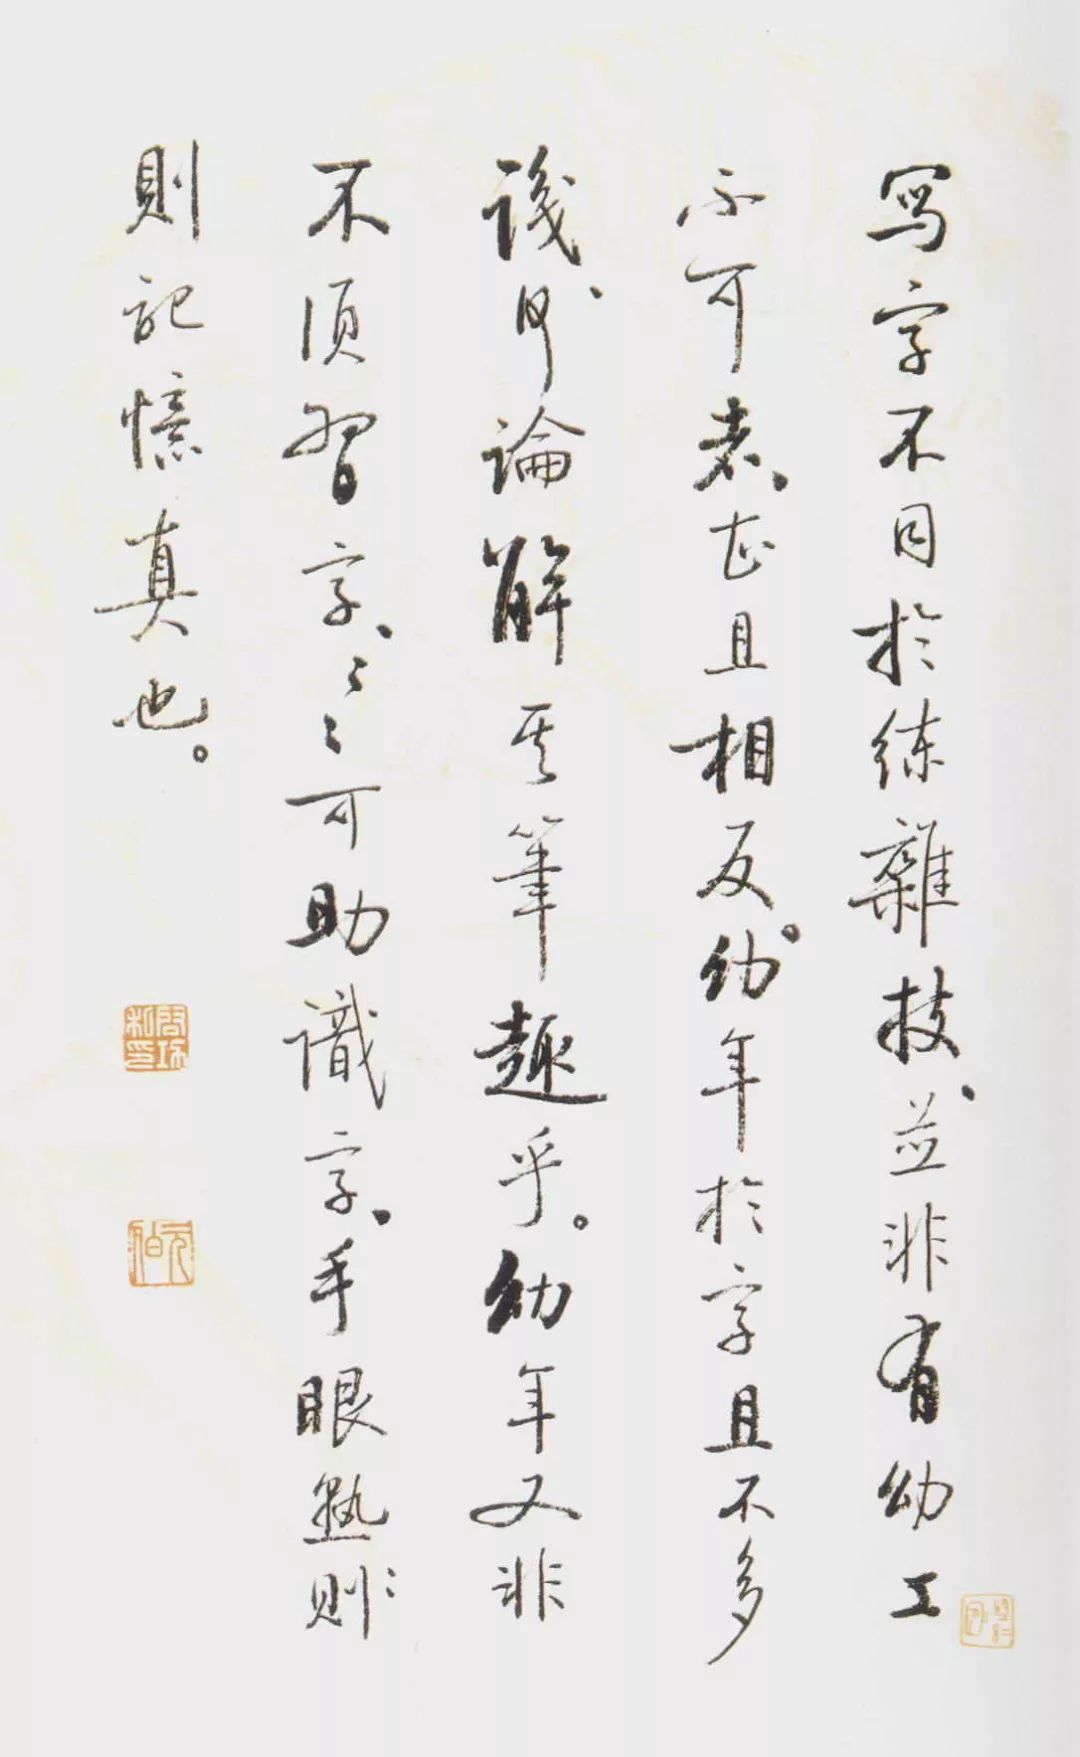 寫字不同於練雜技、並非有幼工
不可者、甚且相反。幼年於字且不多
識、何論解其筆趣乎。幼年又非
不須習字、〻〻可助識字、手眼熟則
則記憶真也。
启功私印
元伯